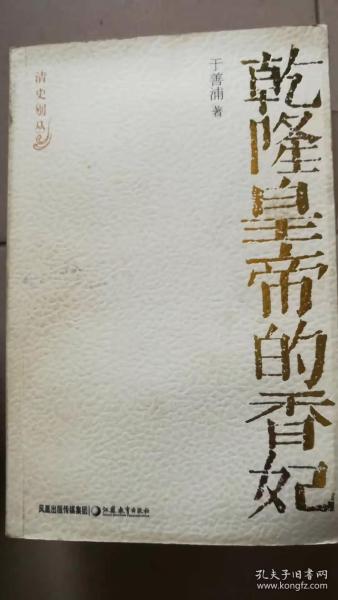 乾隆皇帝的香妃
于善浦 著
凤凰出版传媒集团 江苏教育出版社
孔夫子旧书网